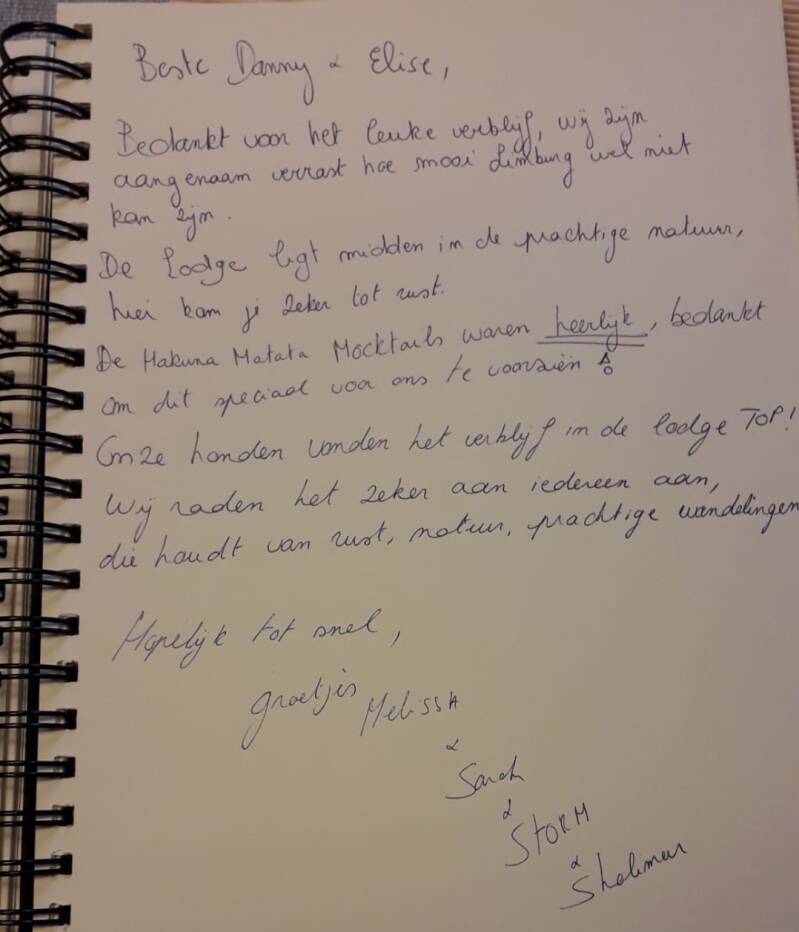 Beste Danny & Elise,
Bedankt voor het leuke verblijf, wij zijn
aangenaam verrast hoe mooi Limburg wel niet
kan zijn.
De lodge ligt midden in de prachtige natuur,
hier kom je zeker tot rust.
De Hakuna Matata Mocktails waren heerlijk, bedankt
om dit speciaal voor ons te voorzien!
Onze honden vonden het verblijf in de lodge TOP!
Wij raden het zeker aan iedereen aan,
die houdt van rust, natuur, prachtige wandelingen
Hopelijk tot snel,
groetjes Melissa
&
Sarah
&
STORM
&
Shalimar